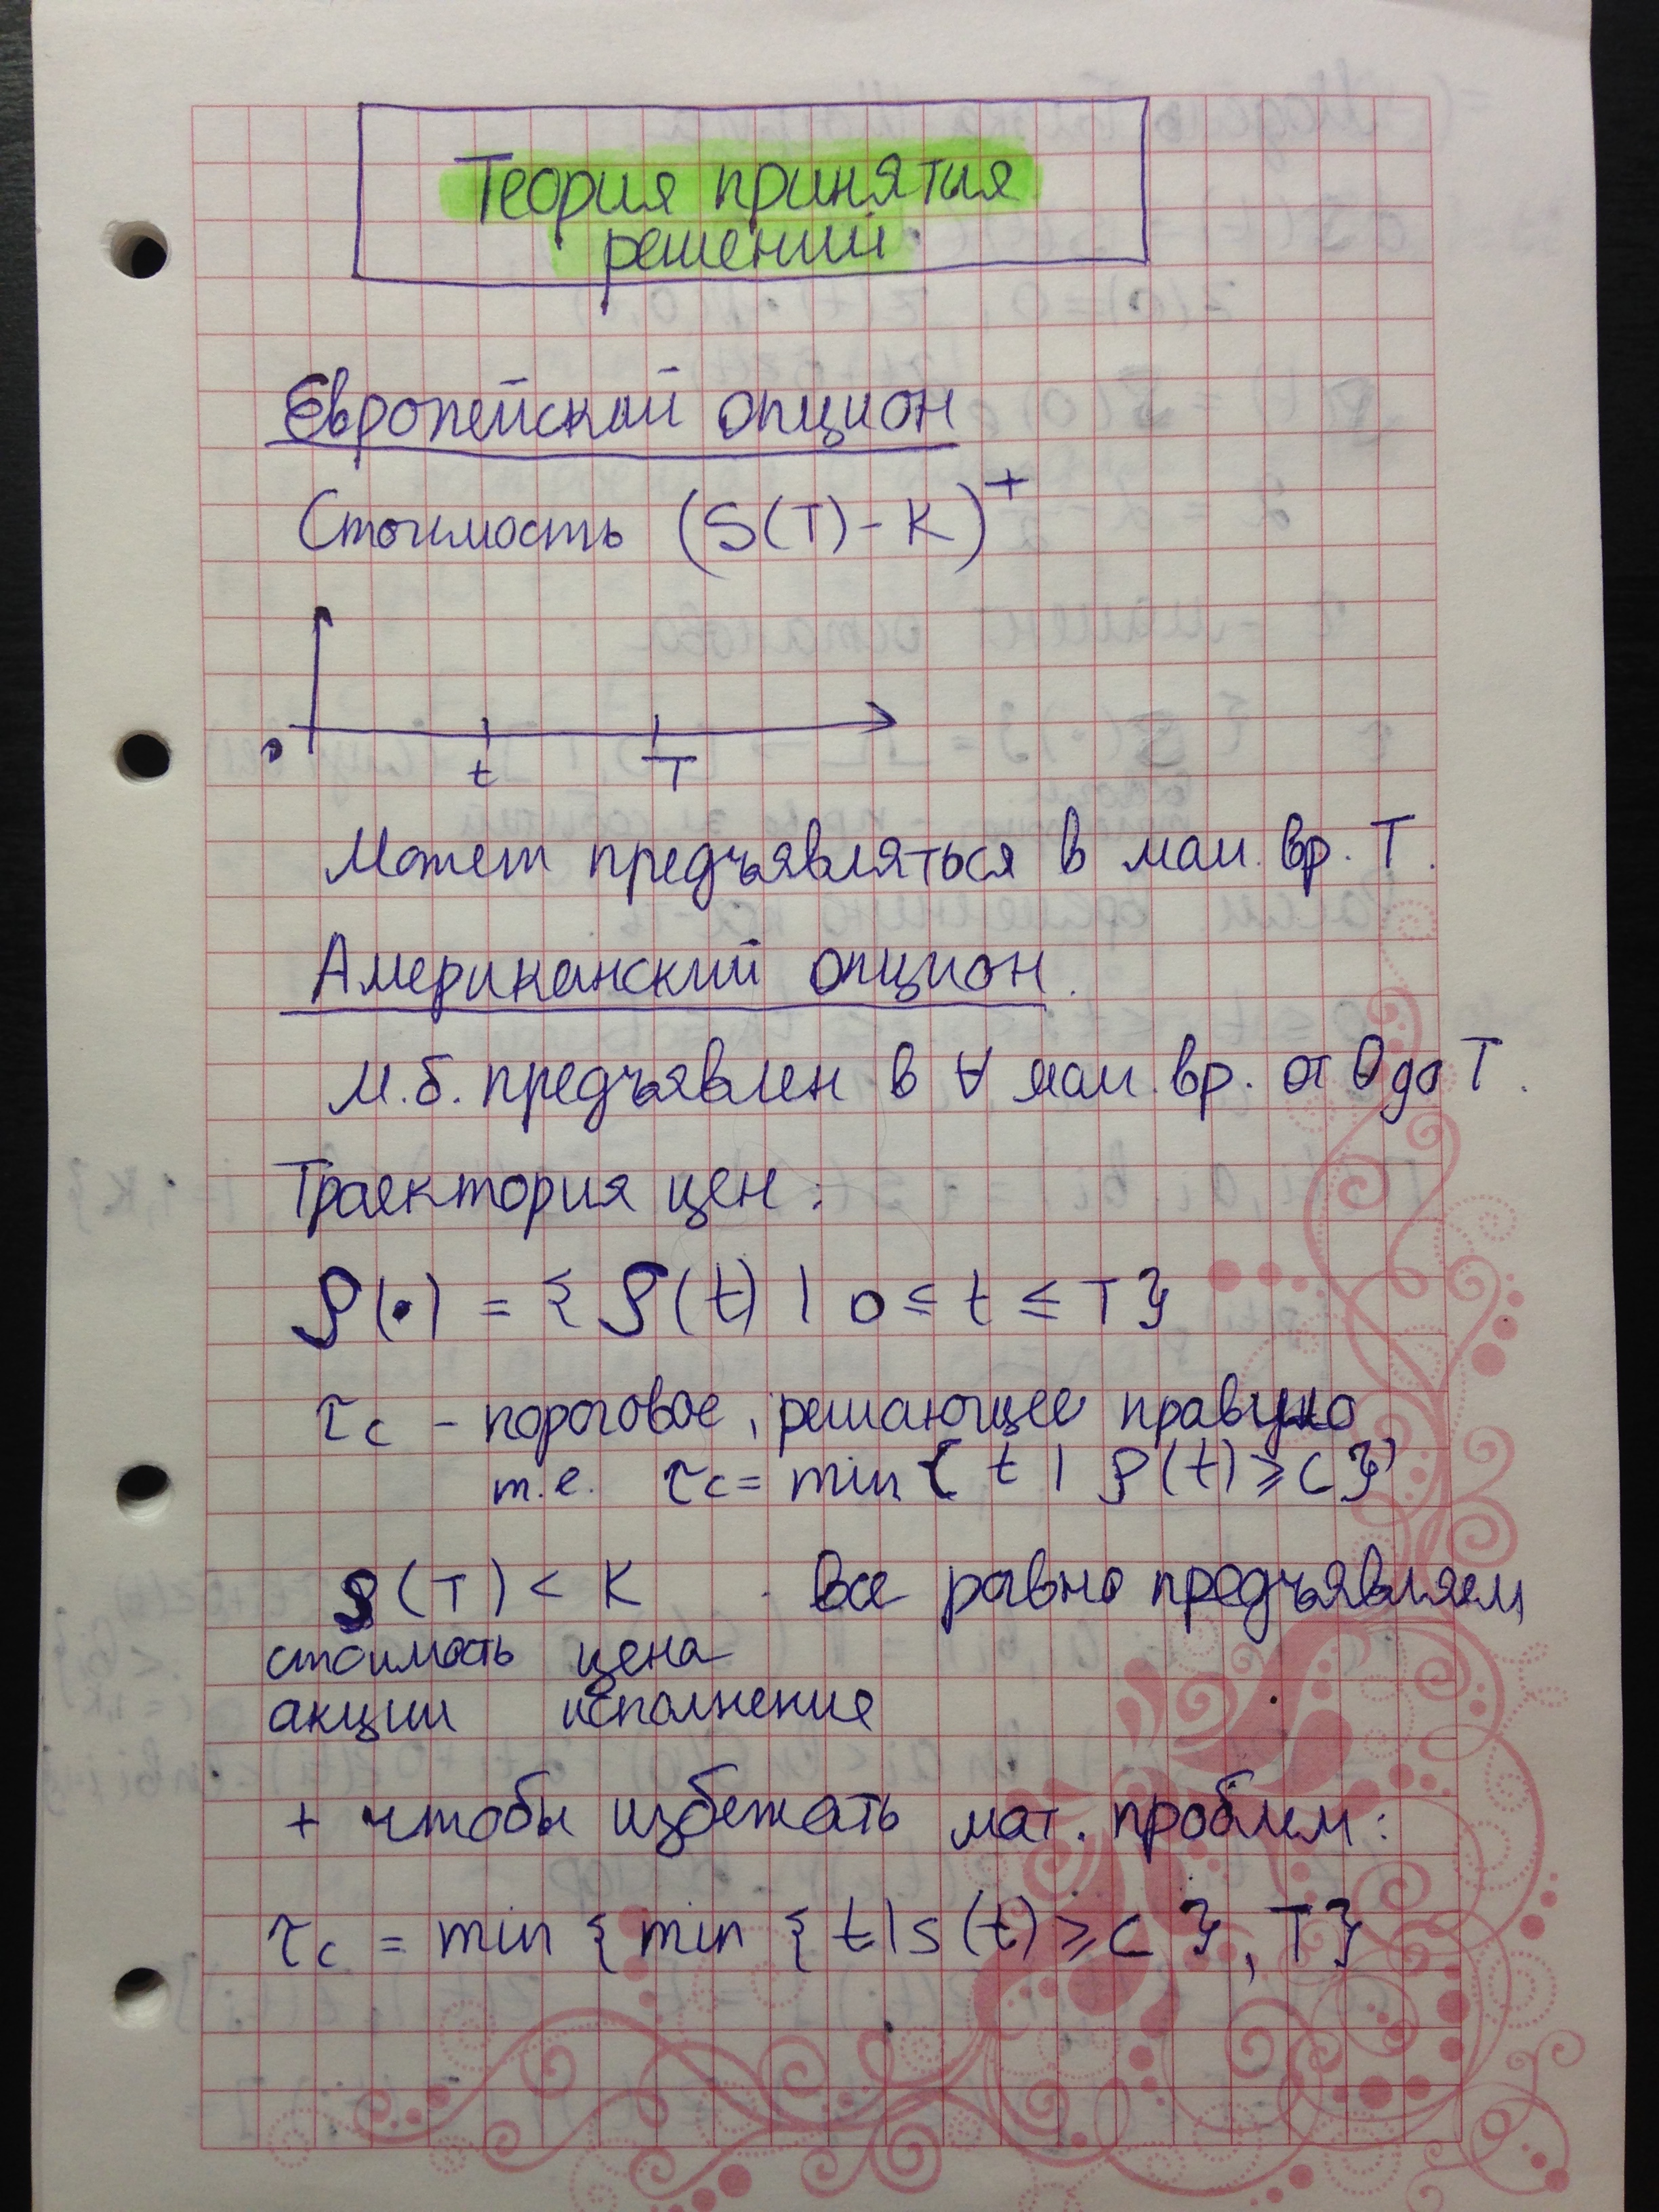 Теория принятия
решений
Европейский опцион
Стоимость (S(T) - K)⁺
0 t T
Может предъявляться в мом. вр. T.
Американский опцион.
М.б. предъявлен в ∀ мом. вр. от 0 до T.
Траектория цен:
S(·) = { S(t) | 0 ≤ t ≤ T }
τc - пороговое, решающее правило
т.е. τc = min { t | S(t) ≥ C }
S(T) < K . Все равно предъявляем
стоимость цена
акции исполнение
+ чтобы избежать мат. проблем:
τc = min { min { t | s(t) ≥ C }, T }